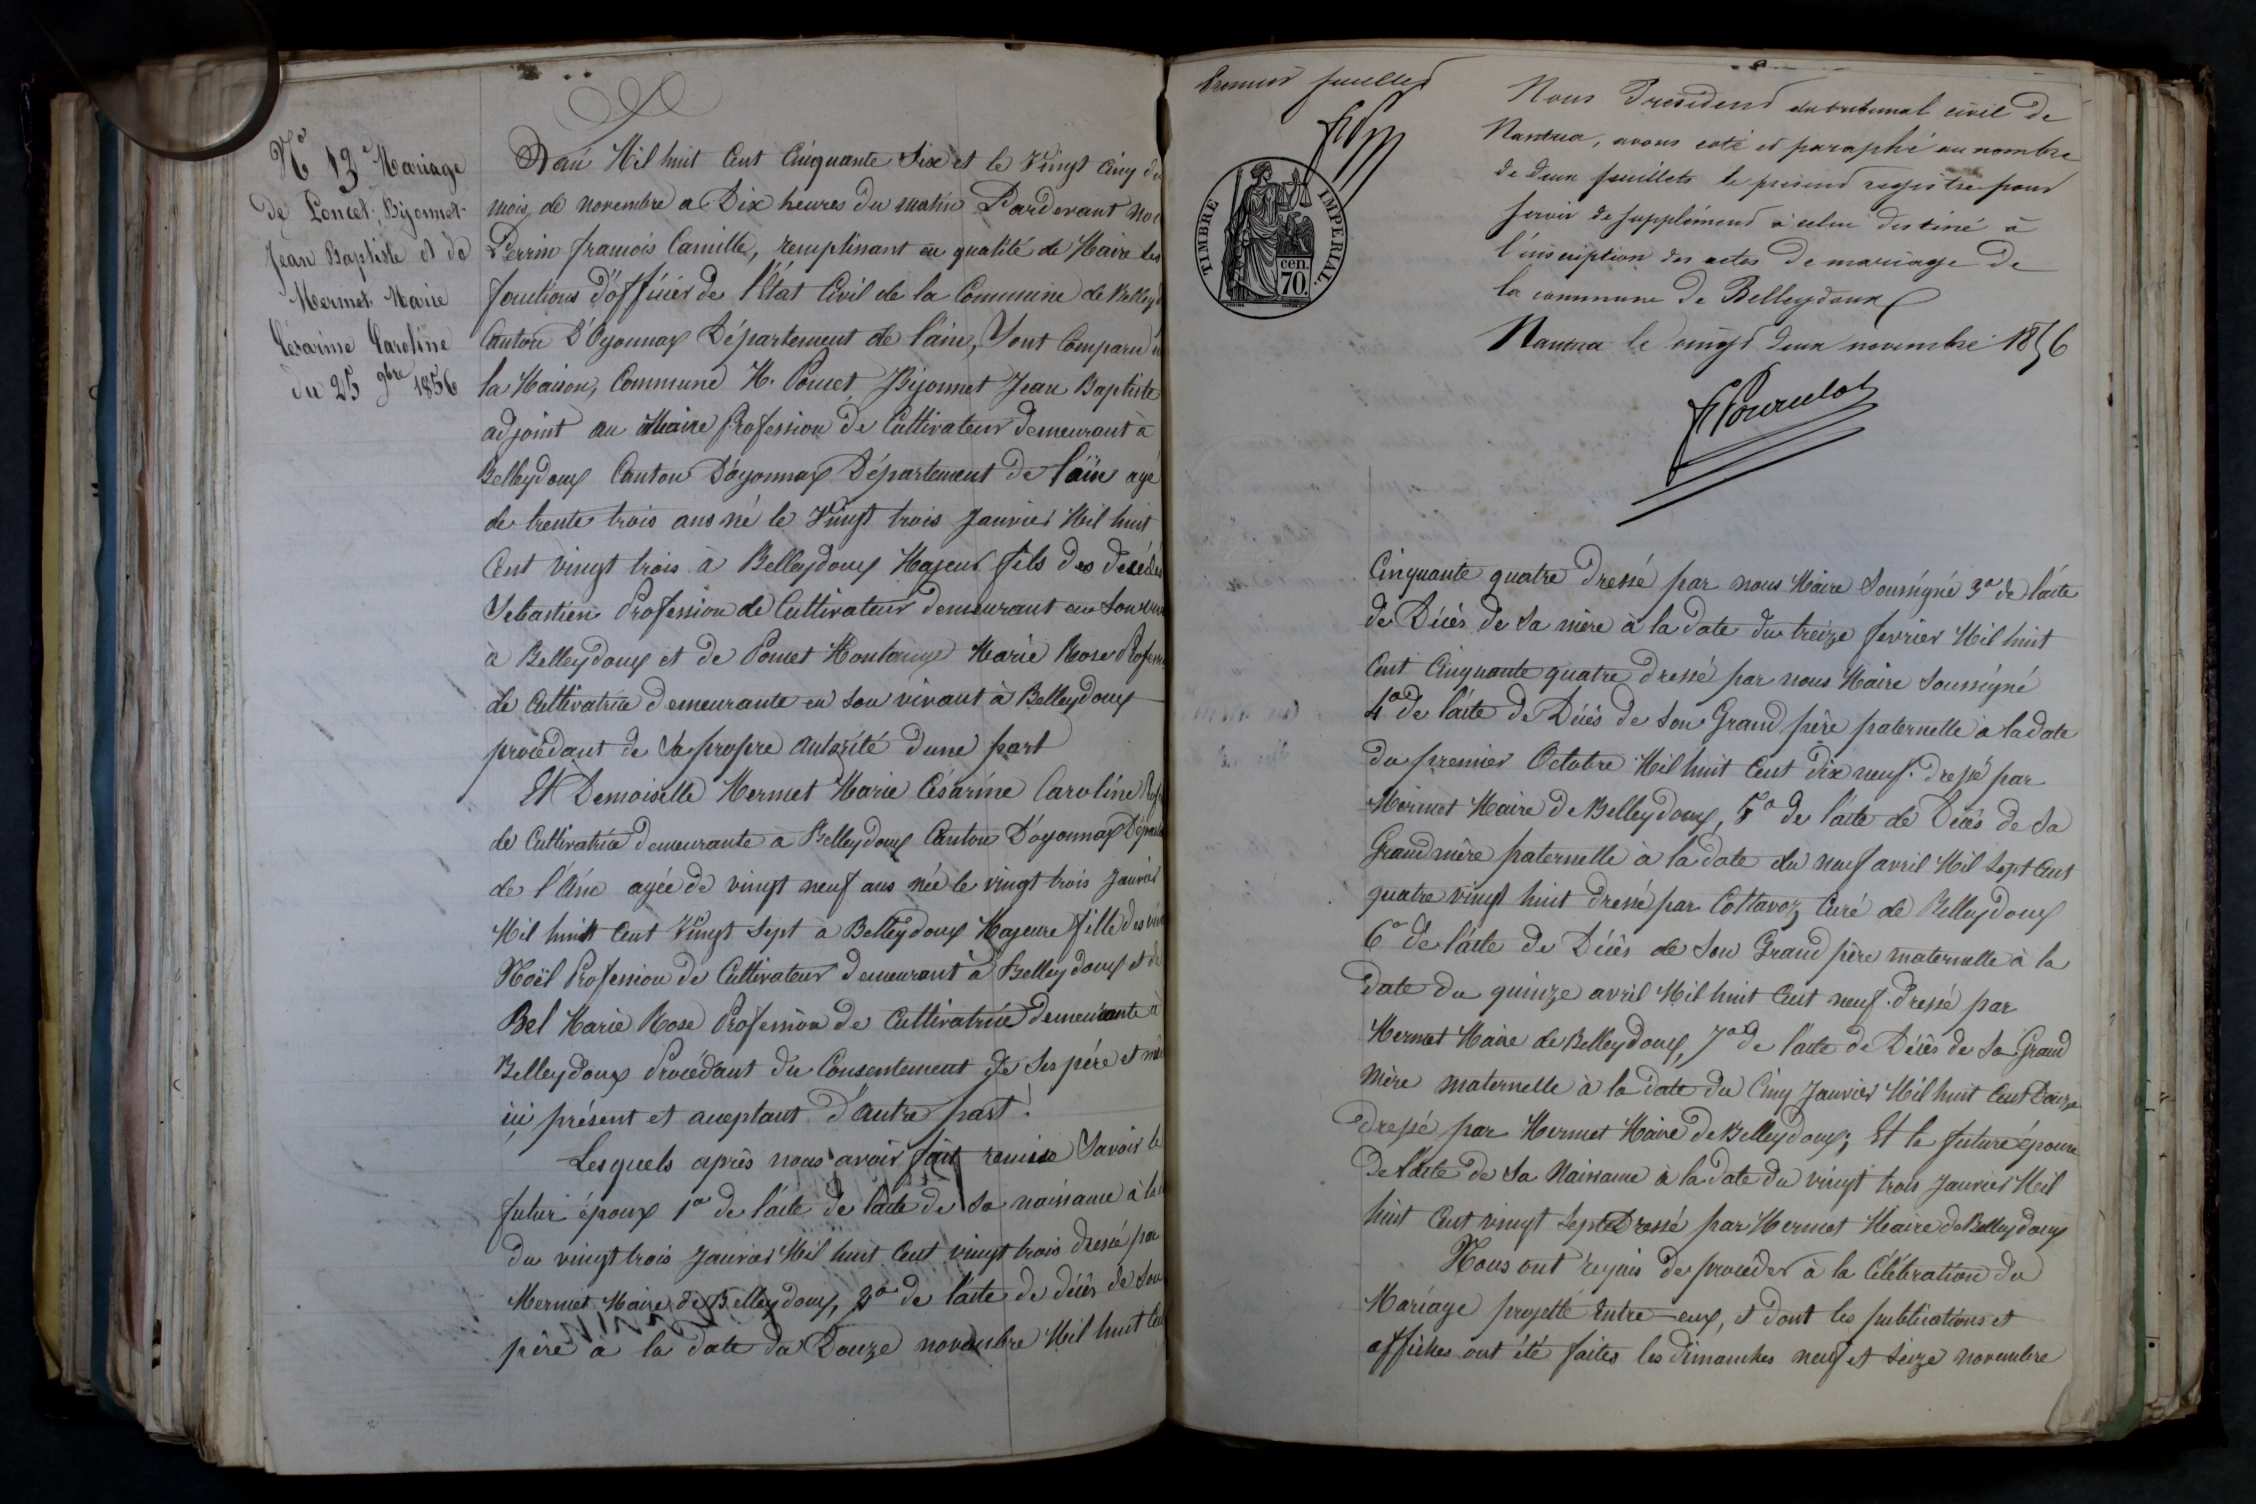 N° 13 Mariage
de Poncet-Bijonnet
Jean Baptiste et de
Mermet Marie
Césarine Caroline
du 25 9bre 1856
L'an Mil huit Cent Cinquante Six et le Vingt Cinq du
mois de novembre a Dix heures du matin Pardevant nou
Perrin françois Camille, remplissant en qualité de Maire les
fonctions d'officier de l'État Civil de la Commune de Belleyd
Canton D'Oyonnax Département de l'ain, Sont Comparu
la Maison, Commune M. Poncet Bijonnet Jean Baptiste
adjoint au Maire Profession de Cultivateur demeurant à
Belleydoux Canton D'oyonnax Département de l'ain agé
de trente trois ans né le Vingt trois Janvier Mil huit
Cent vingt trois à Belleydoux Majeur fils des décédés
Sebastien Profession de Cultivateur demeurant en son viva
à Belleydoux et de Poncet Montange Marie Rose Profess
de Cultivatrice demeurante en son vivant à Belleydoux
procédant de sa propre autorité d'une part
Et Demoiselle Mermet Marie Césarine Caroline Prof
de Cultivatrice demeurante à Belleydoux Canton D'oyonnax Départ
de l'Ain agée de vingt neuf ans née le vingt trois Janvier
Mil huit Cent Vingt Sept à Belleydoux Majeure fille des viv
Noël Profession de Cultivateur demeurant à Belleydoux et de
Bel Marie Rose Profession de Cultivatrice demeurante à
Belleydoux Procédant du Consentement de ses père et mè
ici présent et acceptant d'autre part.
Lesquels après nous avoir fait remise Savoir le
futur époux 1° de l'acte de l'acte de sa naissance à la
du vingt trois Janvier Mil huit Cent vingt trois dressé par
Mermet Maire de Belleydoux, 2° de l'acte de décès de son
père à la date du Douze novembre Mil huit Cen
Premier feuillet
TIMBRE IMPERIAL
70. cen.
Nous Président du tribunal civil de
Nantua, avons coté et paraphé au nombre
de deux feuillets le présent registre pour
servir de supplément à celui destiné à
l'inscription des actes de mariage de
la commune de Belleydoux
Nantua le vingt deux novembre 1856
Cinquante quatre dressé par nous Maire Soussigné 3° de l'acte
de Décès de sa mère à la date du treize fevrier Mil huit
Cent Cinquante quatre dressé par nous Maire Soussigné
4° de l'acte de Décès de son Grand père paternelle à la date
du premier Octobre Mil huit Cent Dix neuf dressé par
Mermet Maire de Belleydoux, 5° de l'acte de Décès de sa
Grand mère paternelle à la date du neuf avril Mil Sept Cent
quatre vingt huit dressé par Cottavoz Curé de Belleydoux
6° de l'acte de Décès de son Grand père maternelle à la
date du quinze avril Mil huit Cent neuf dressé par
Mermet Maire de Belleydoux, 7° de l'acte de Décès de sa Grand
mère maternelle à la date du Cinq Janvier Mil huit Cent Douze
dressé par Mermet Maire de Belleydoux; Et la future épouse
De l'acte de sa Naissance à la date du vingt trois Janvier Mil
huit Cent vingt Sept Dressé par Mermet Maire de Belleydoux
Nous ont requis de procéder à la Célébration du
Mariage projetté entre eux, et dont les publications et
affiches ont été faites les dimanches neuf et seize novembre